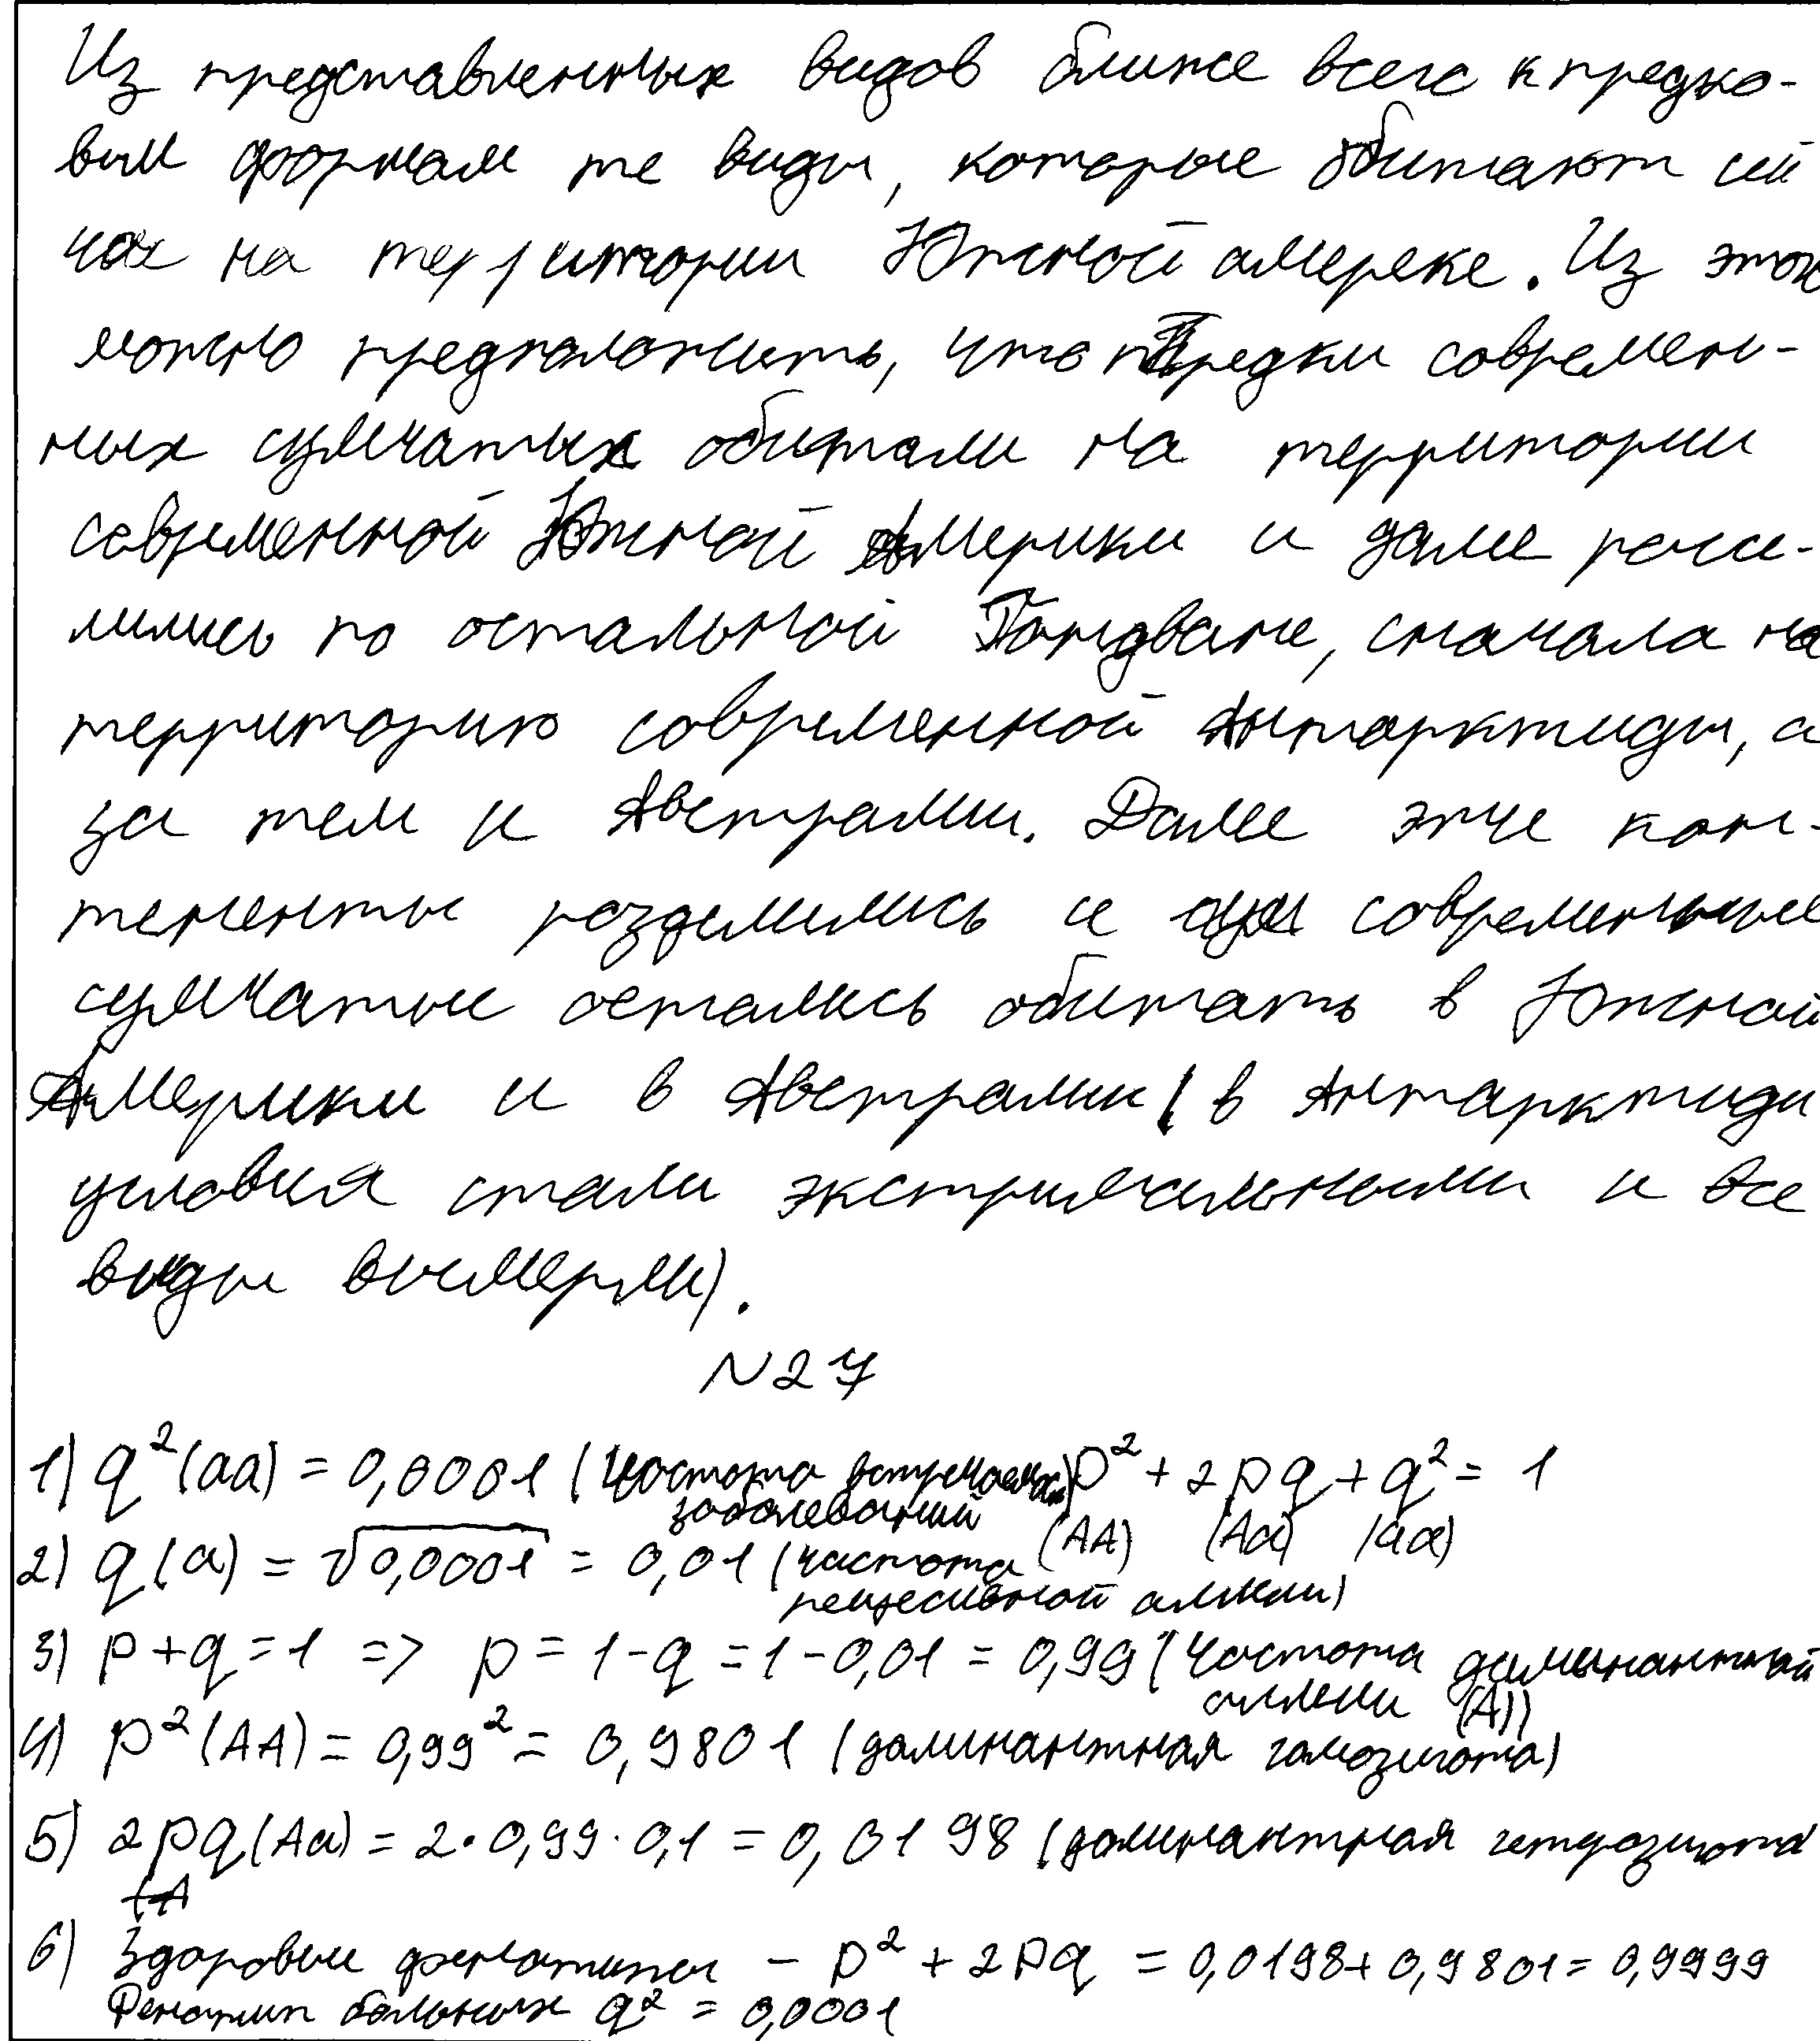 Из представленных видов ближе всего к предко-
вым формам те виды, которые обитают сей
час на территории Южной америке. Из этог
можно предположить, что предки современ-
ных сумчатых обитали на территории
современной Южной Америки и далее рассе-
лились по остальной Гондване, сначала на
территорию современной Антарктиды, а
за тем и Австралии. Далее эти кон-
тененты разделились и современные
сумчатые остались обитать в Южной
Америки и в Австралии (в Антарктиди
условия стали экстримальными и все
виды вымерли).
N27
1) q²(aa) = 0,0001 (частота встречаемх заболеваний) p² + 2pq + q² = 1
(AA) (Aa) (aa)
2) q(a) = √0,0001 = 0,01 (частота рецесивной аллели)
3) p+q=1 => p = 1-q = 1-0,01 = 0,99 (частота доминантной аллели (A))
4) p²(AA) = 0,99² = 0,9801 (доминантная гомозигота)
5) 2pq(Aa) = 2·0,99·0,1 = 0,0198 (доминантная гетрозигота
6) Здоровые фенотипы - p² + 2pq = 0,0198+0,9801=0,9999
Фенотип больных q² = 0,0001